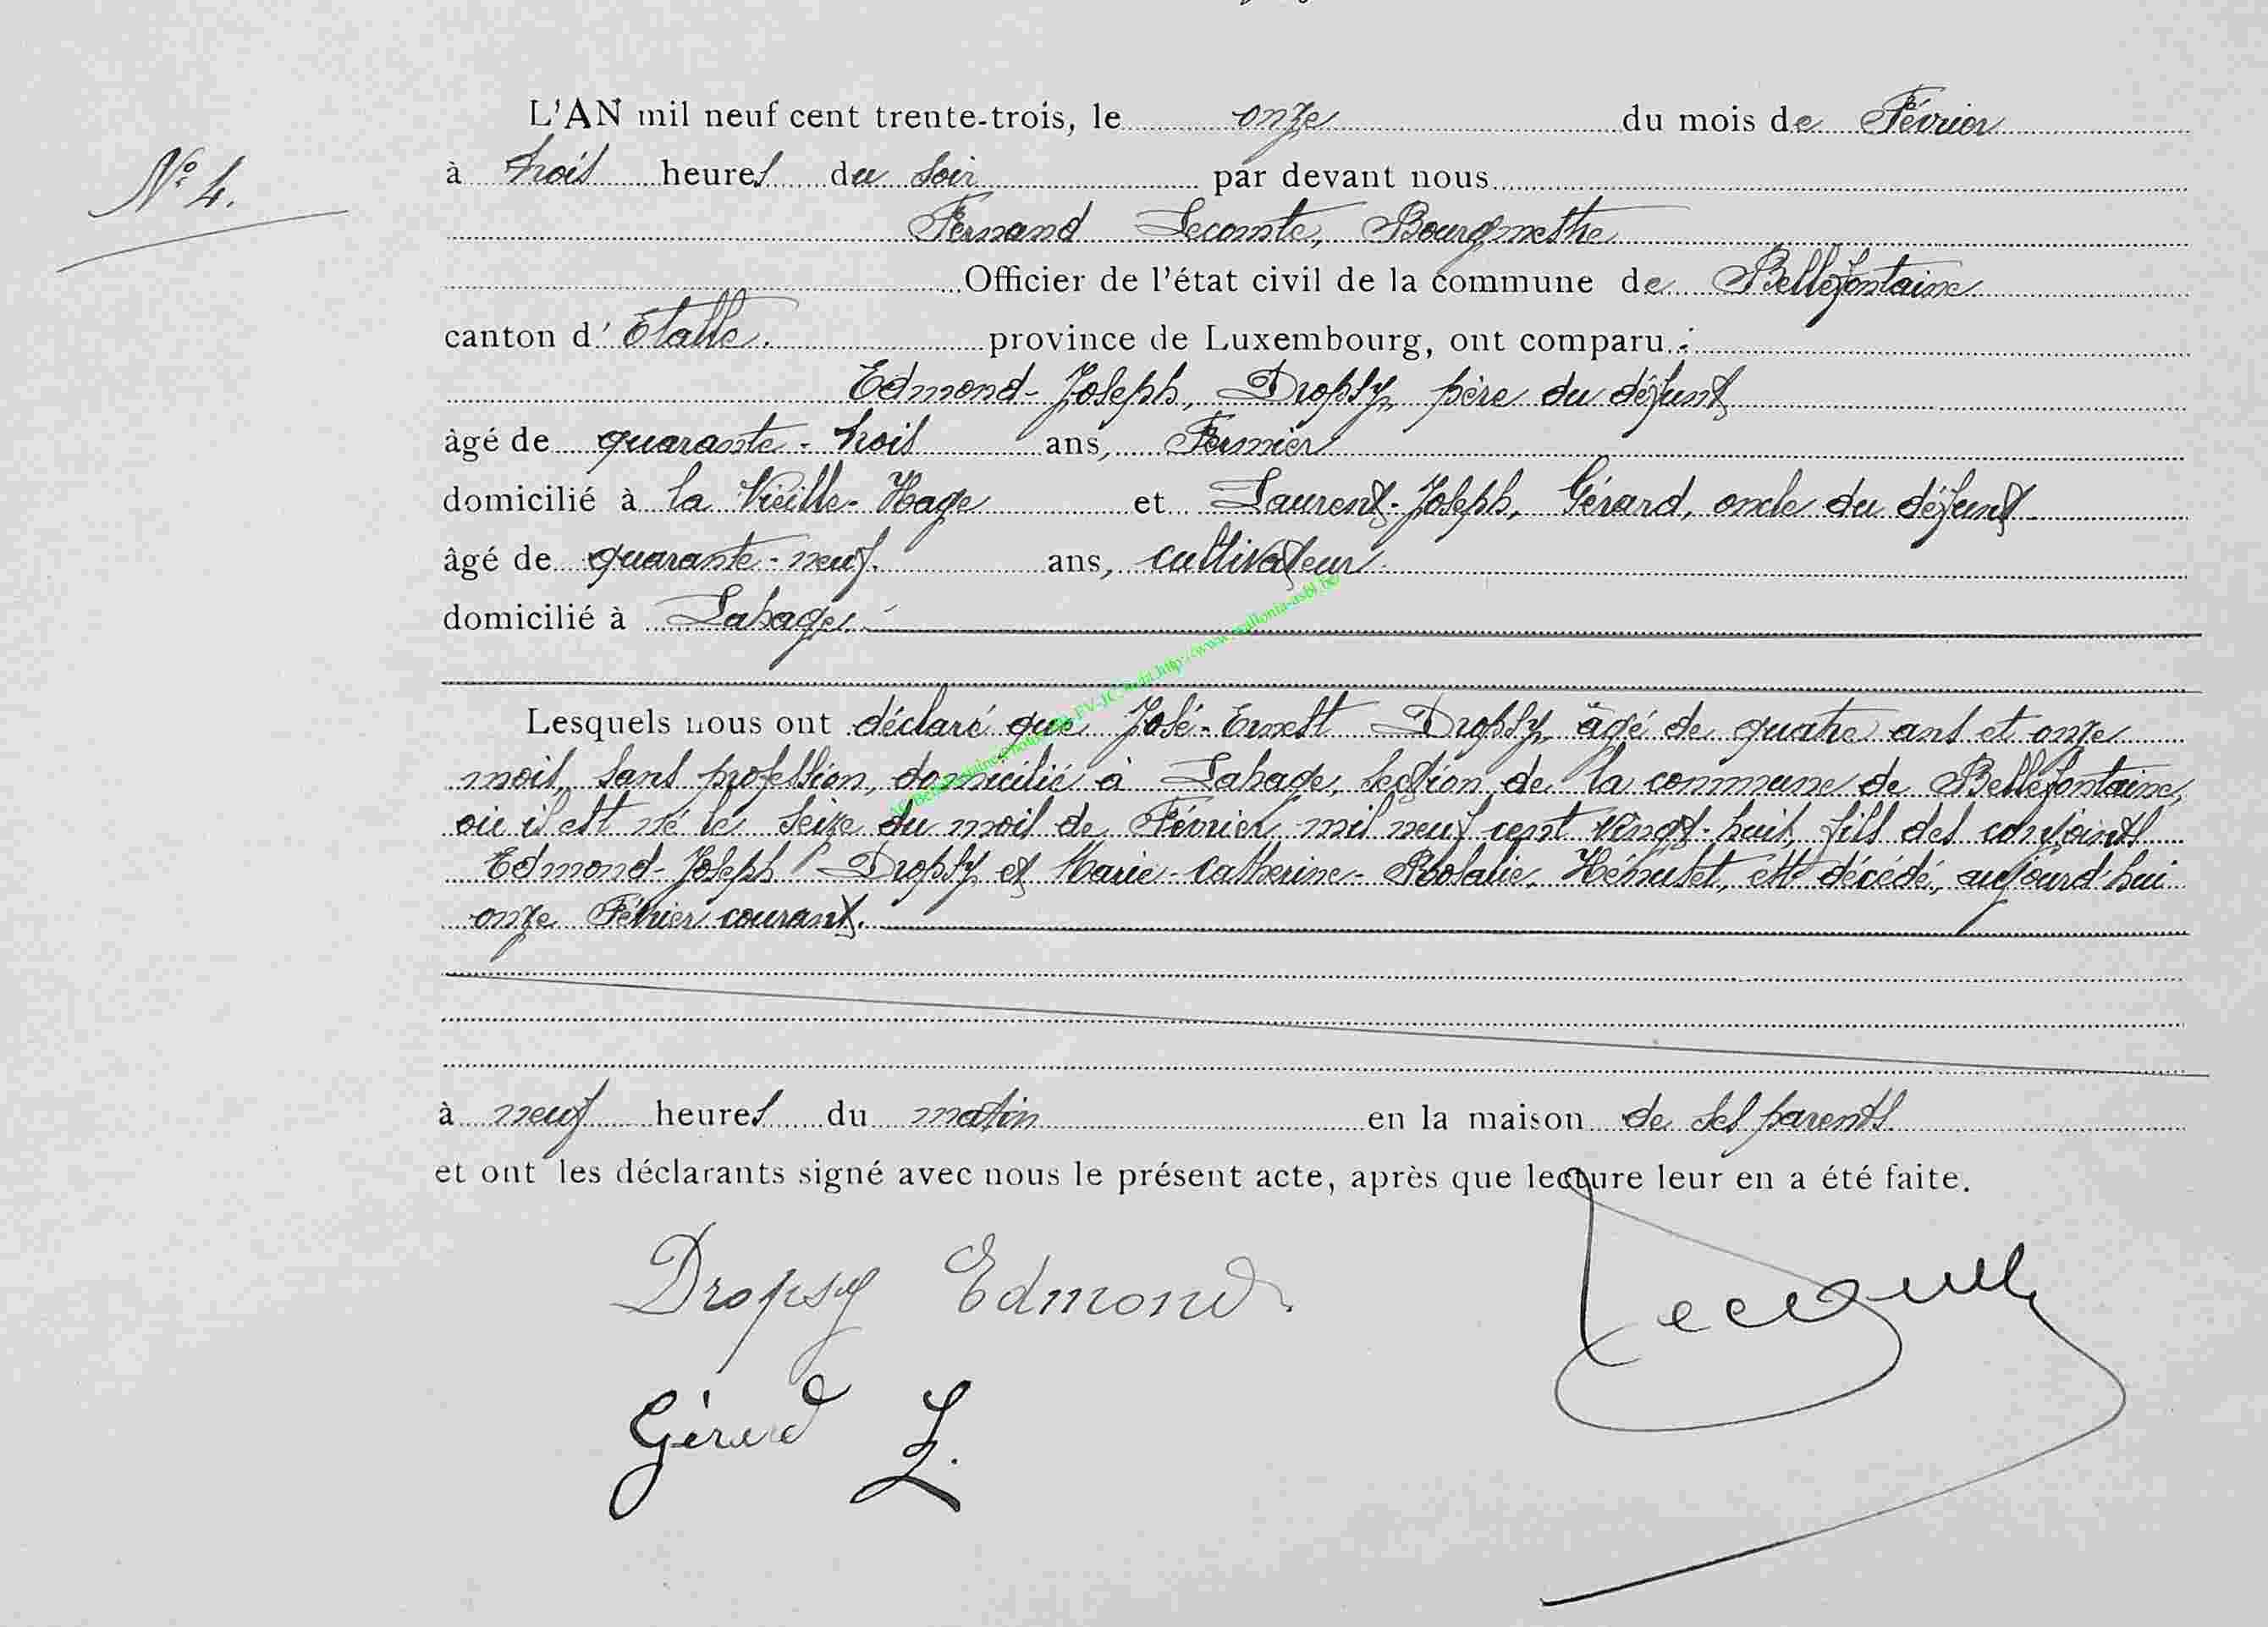 L'AN mil neuf cent trente-trois, le onze du mois de Février
N° 4.
à trois heures du soir par devant nous
Fernand Lecomte, Bourgmestre
Officier de l'état civil de la commune de Bellefontaine
canton d' Etalle. province de Luxembourg, ont comparu :
Edmond-Joseph, Dropsy, père du défunt
âgé de quarante-trois ans, Fermier
domicilié à la Vieille-Hage et Laurent-Joseph, Gérard, oncle du défunt
âgé de quarante-neuf. ans, cultivateur
domicilié à Lahage.
Lesquels nous ont déclaré que José-Ernest Dropsy, âgé de quatre ans et onze
mois, sans profession, domicilié à Lahage, section de la commune de Bellefontaine,
où il est né le seize du mois de Février mil neuf cent vingt-huit, fils des conjoints
Edmond-Joseph Dropsy et Marie-Catherine-Rosalie, est décédé, aujourd'hui
onze Février courant.
à neuf heures du matin en la maison de ses parents.
et ont les déclarants signé avec nous le présent acte, après que lecture leur en a été faite.
Dropsy Edmond
Gérard L.